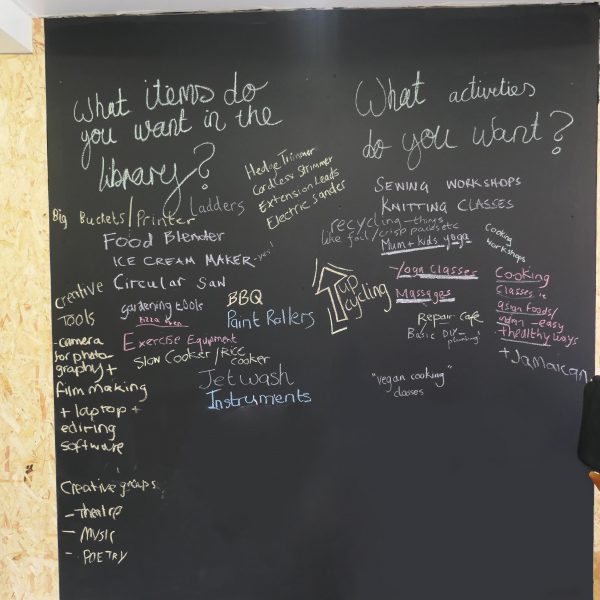 What items do
you want in the
library?
Hedge Trimmer
Cordless Strimmer
Extension Leads
Electric Sander
ladders
Big Buckets/Printer
Food Blender
ICE CREAM MAKER - yes!
Circular Saw
gardening tools
Pizza oven
BBQ
Paint Rollers
Exercise Equipment
Slow Cooker/Rice
cooker
Jet wash
Instruments
Creative
Tools
- camera
for photo
graphy +
film making
+ laptop +
editing
software
Creative groups
- Theatre
- MUSIC
- POETRY
What activities
do you want?
SEWING WORKSHOPS
KNITTING CLASSES
recycling - things
like foil/crisp packets etc
Mum + kids yoga
Cooking
workshops
up
cycling
Yoga Classes
Massages
Repair Cafe
Basic DIY - plumbing!
"vegan cooking"
classes
Cooking
Classes in
asian foods/
indian - easy
+ healthy ways
+ Jamaican